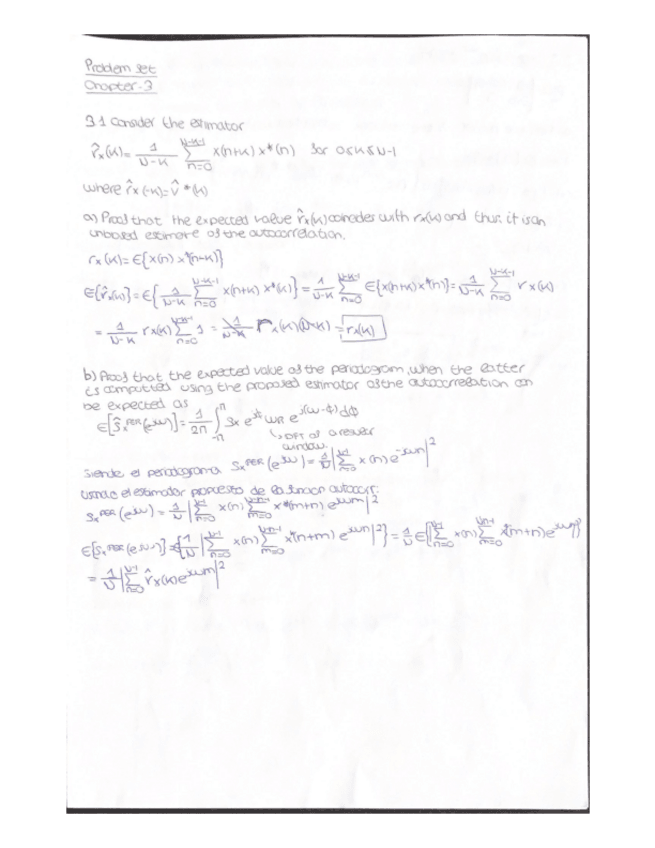 Problem set
Chapter-3
3.1 Consider the estimator
r̂x(k) = 1/(N-k) Σ_{n=0}^{N-k-1} x(n+k) x*(n) for 0≤k≤N-1
where r̂x(-k) = r̂*(k)
a) Proof that the expected value r̂x(k) coincides with rx(k) and thus it is an
unbiased estimate of the autocorrelation.
rx(k) = E{x(n) x*(n-k)}
E{r̂x(k)} = E{ 1/(N-k) Σ_{n=0}^{N-k-1} x(n+k) x*(k) } = 1/(N-k) Σ_{n=0}^{N-k-1} E{x(n+k) x*(n)} = 1/(N-k) Σ_{n=0}^{N-k-1} rx(k)
= 1/(N-k) rx(k) Σ_{n=0}^{N-k-1} 1 = 1/(N-k) rx(k)(N-k) = rx(k)
b) Proof that the expected value of the periodogram, when the latter
is computed using the proposed estimator of the autocorrelation can
be expected as
E[Ŝx^PER(e^jω)] = 1/2π ∫_{-π}^{π} Sx e^jφ WR e^j(ω-φ) dφ
window.
Sx^PER(e^jω) = 1/N |Σ_{n=0}^{N-1} x(n) e^-jωn|²
Siendo el periodograma
usando el estimador propuesto de la funcion autocorr:
Sx^PER(e^jω) = 1/N |Σ_{n=0}^{N-1} x(n) Σ_{m=0}^{N-n-1} x*(m+n) e^jωm|²
E[Sx^PER(e^jω)] = E{1/N |Σ_{n=0}^{N-1} x(n) Σ_{m=0}^{N-n-1} x*(n+m) e^jωn|²} = 1/N E{|Σ_{n=0}^{N-1} x(n) Σ_{m=0}^{N-n-1} x*(m+n) e^jωn|²}
= 1/N |Σ_{n=0}^{N-1} r̂x(k) e^jωm|²